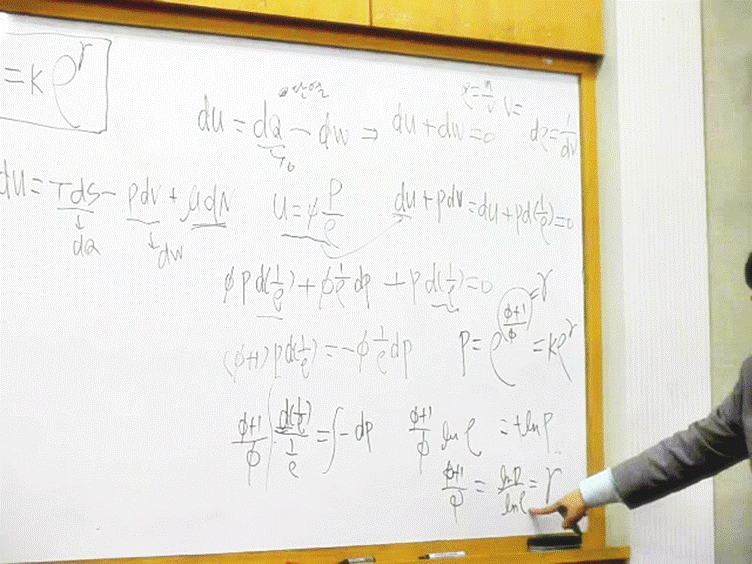 = kρ^γ
단열
du = dQ - dw ⇒ du + dw = 0
ρ = n/V V=
dρ = 1/dV
du = Tds - pdv + μdN
dQ
dw
u = φ P/ρ
du + pdv = du + pd(1/ρ) = 0
φ p d(1/ρ) + φ 1/ρ dp + p d(1/ρ) = 0
(φ+1) p d(1/ρ) = -φ 1/ρ dp
P = ρ^((φ+1)/φ) = kρ^γ
= γ
(φ+1)/φ ∫ d(1/ρ)/(1/ρ) = ∫ - dp
(φ+1)/φ ln ρ = + ln P
(φ+1)/φ = ln P/ln ρ = γ